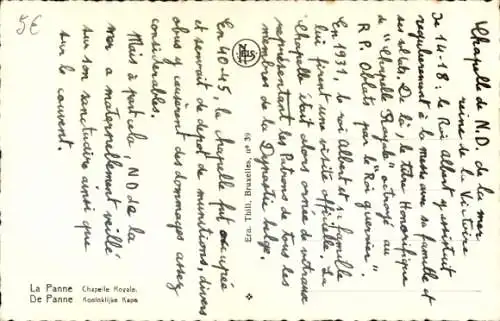 Chapelle de N.D. de la mer
reine de la Victoire
De 14-18 : le Roi Albert y assistait
régulièrement à la messe avec sa famille et
ses soldats. De là, le titre Honorifique
de "Chapelle Royale" octroyé au
R.P. Oblats par le "Roi guerrier".
En 1931, le roi Albert et sa famille
lui firent une visite officielle. La
Chapelle était alors ornée de vitraux
représentant les Patrons de tous les
membres de la Dynastie belge.
En 40-45, la chapelle fut occupée
et servait de depot de munitions, divers
obus y causèrent des dommages assez
considérables.
Mais à part cela, N D de la
mer a maternellement veillé
sur son sanctuaire ainsi que
sur le couvent.
5€
NELS
Ern. Thill, Bruxelles, nº 39
La Panne Chapelle Royale.
De Panne Koninklijke Kapel